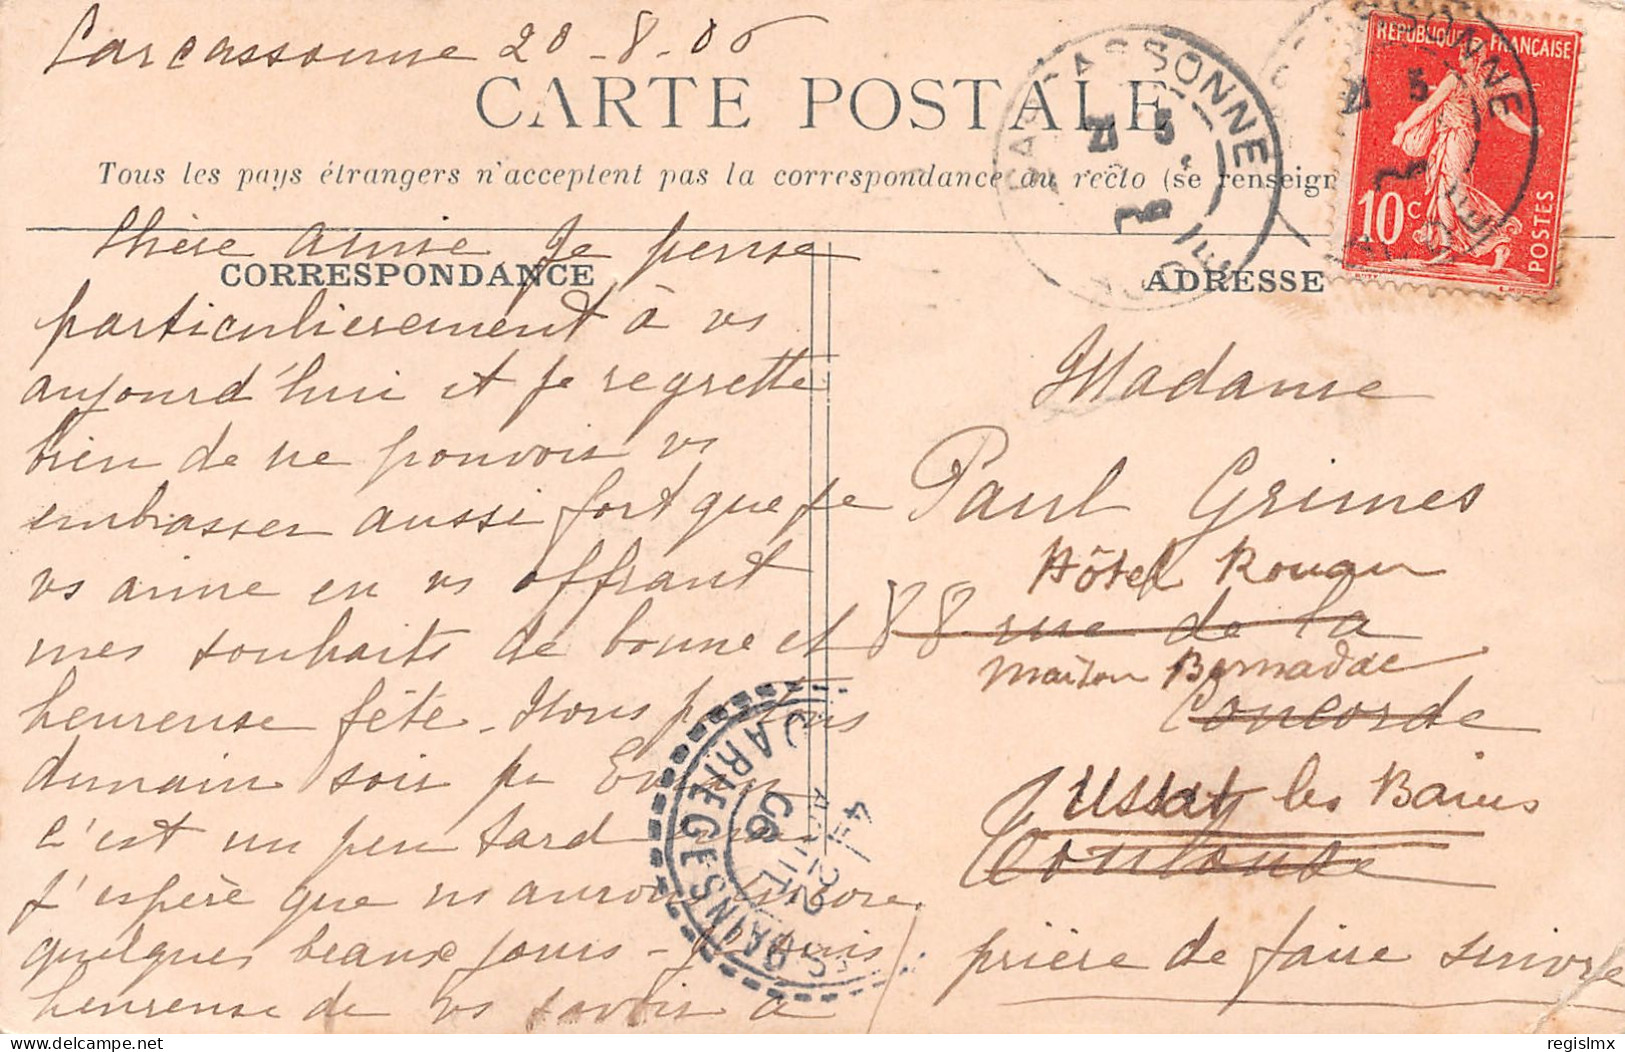 Carcassonne 20-8-06
CARTE POSTALE
Tous les pays étrangers n'acceptent pas la correspondance au recto (se renseign
CORRESPONDANCE
Chère amie Je pense
particulièrement à vs
aujourd'hui et je regrette
bien de ne pouvoir vs
embrasser aussi fort que je
vs aime en vs offrant
mes souhaits de bonne et
heureuse fête - Nous
demain soir pr
c'est un peu tard
j'espère que ns aurons encore
quelques beaux jours - Je suis
heureuse de vs savoir à
ADRESSE
Madame
Paul Grimes
Hôtel Rougu
88 rue de la
maison Bernadac
Concorde
Ussat les Bains
Toulouse
prière de faire suivre
REPUBLIQUE FRANÇAISE
10 c
POSTES
CARCASSONNE
21 5
CARCASSONNE
21 5
ARIEGE
BAINS
22
AOUT
06
delcampe.net
regislmx